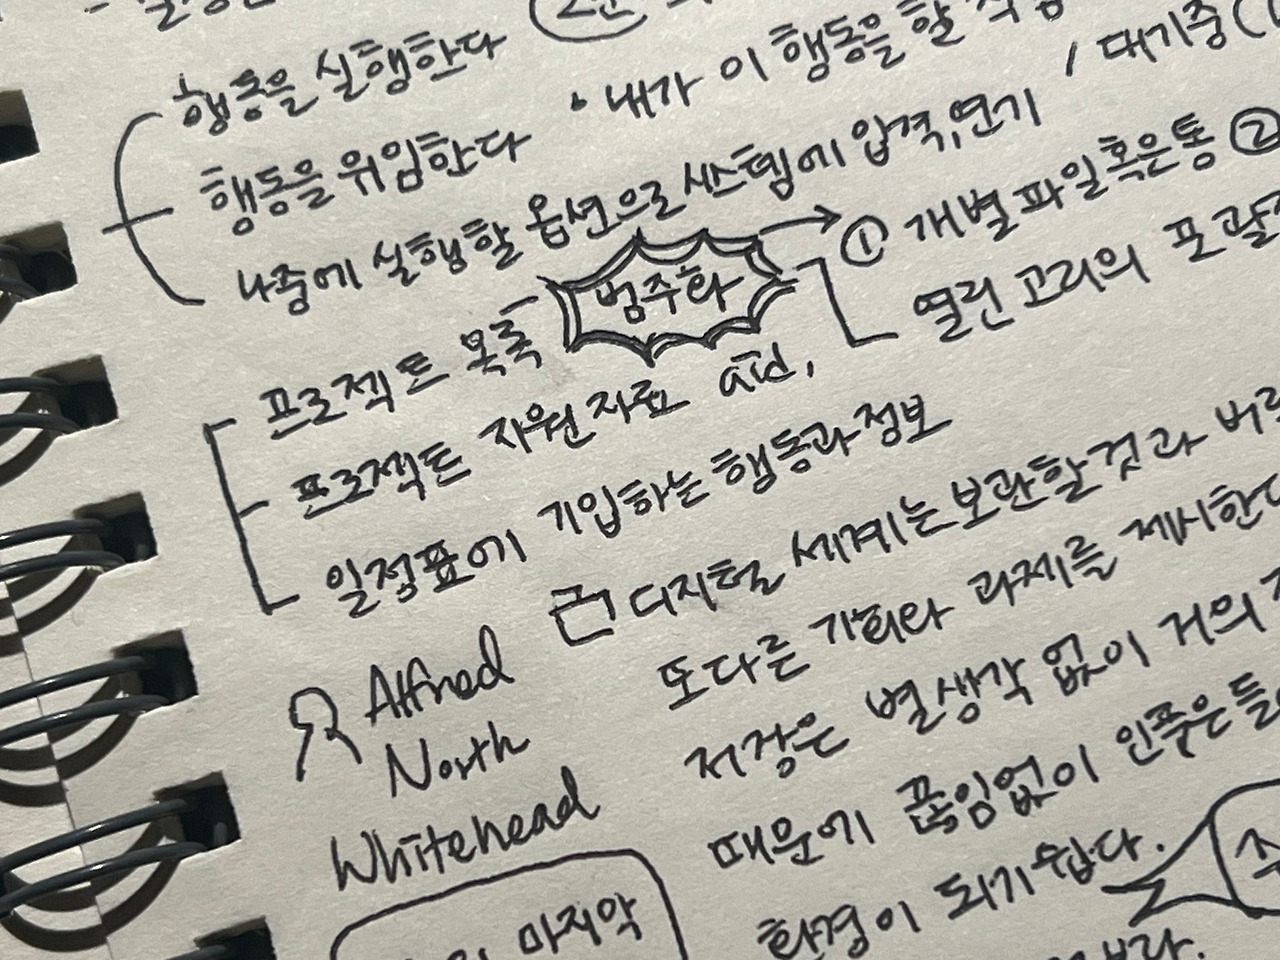 행동을 실행한다
· 내가 이 행동을 할
/ 대기중(
행동을 위임한다
나중에 실행할 옵션으로 시스템에 압력,연기
범주화
① 개별 파일 혹은 통 ②
열린 고리의 포괄
프로젝트 목록
프로젝트 지원 자료 aid,
일정표에 기입하는 행동과 정보
디지털 세계는 보관할 것과 버
또다른 기회라 과제를 제시한다
저장은 별생각 없이 거의
때문에 끊임없이 인풋은 들
환경이 되기 쉽다.
Alfred
North
Whitehead
마지막